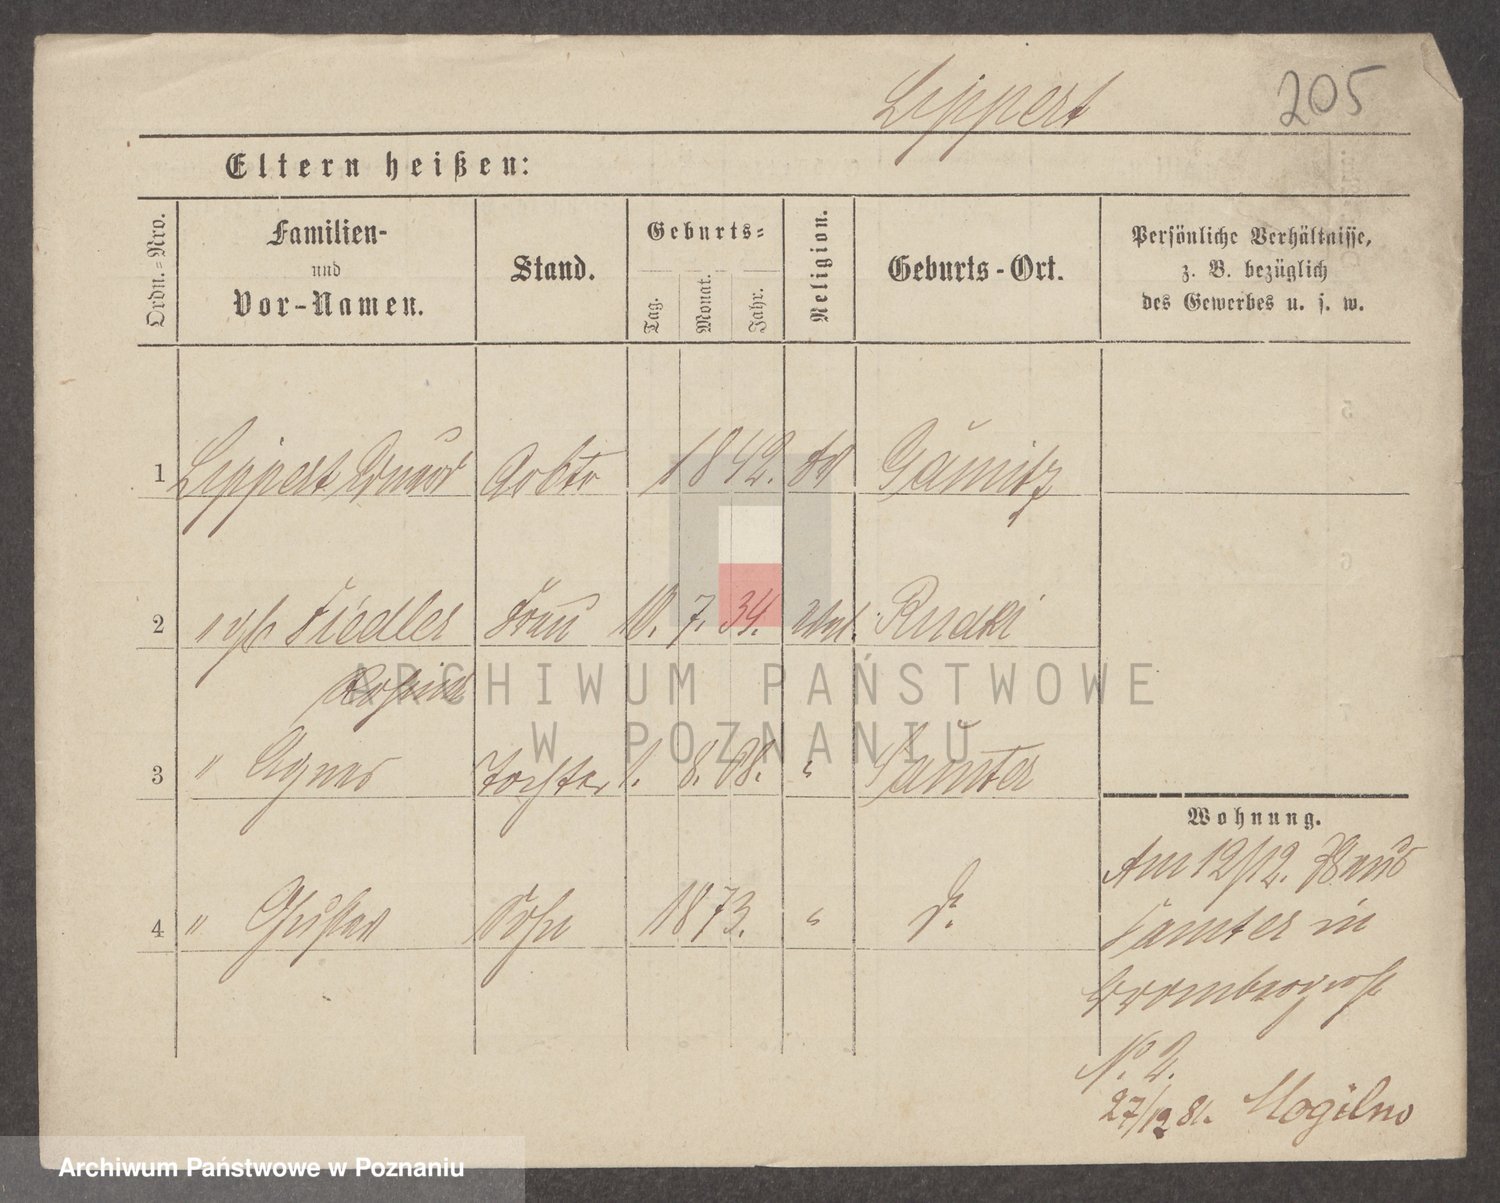 Lippert
205
Eltern heißen:
Ordn.-Nro.
Familien-
und
Vor-Namen.
Stand.
Geburts-
Tag.
Monat.
Jahr.
Religion.
Geburts-Ort.
Persönliche Verhältnisse,
z. B. bezüglich
des Gewerbes u. s. w.
1 Lippert 1842.
2 " Fiedler Frau 10. 7. 34. Rudki
Rosina
3 " Agnes Tochter 1. 8. 68. " Samter
4 " Gustav Sohn 1873. " d.
Wohnung.
Am 12/12. 78 aus
Samter in
Brombergerst
No. 2.
27/12 81. Mogilno
ARCHIWUM PAŃSTWOWE
W POZNANIU
Archiwum Państwowe w Poznaniu